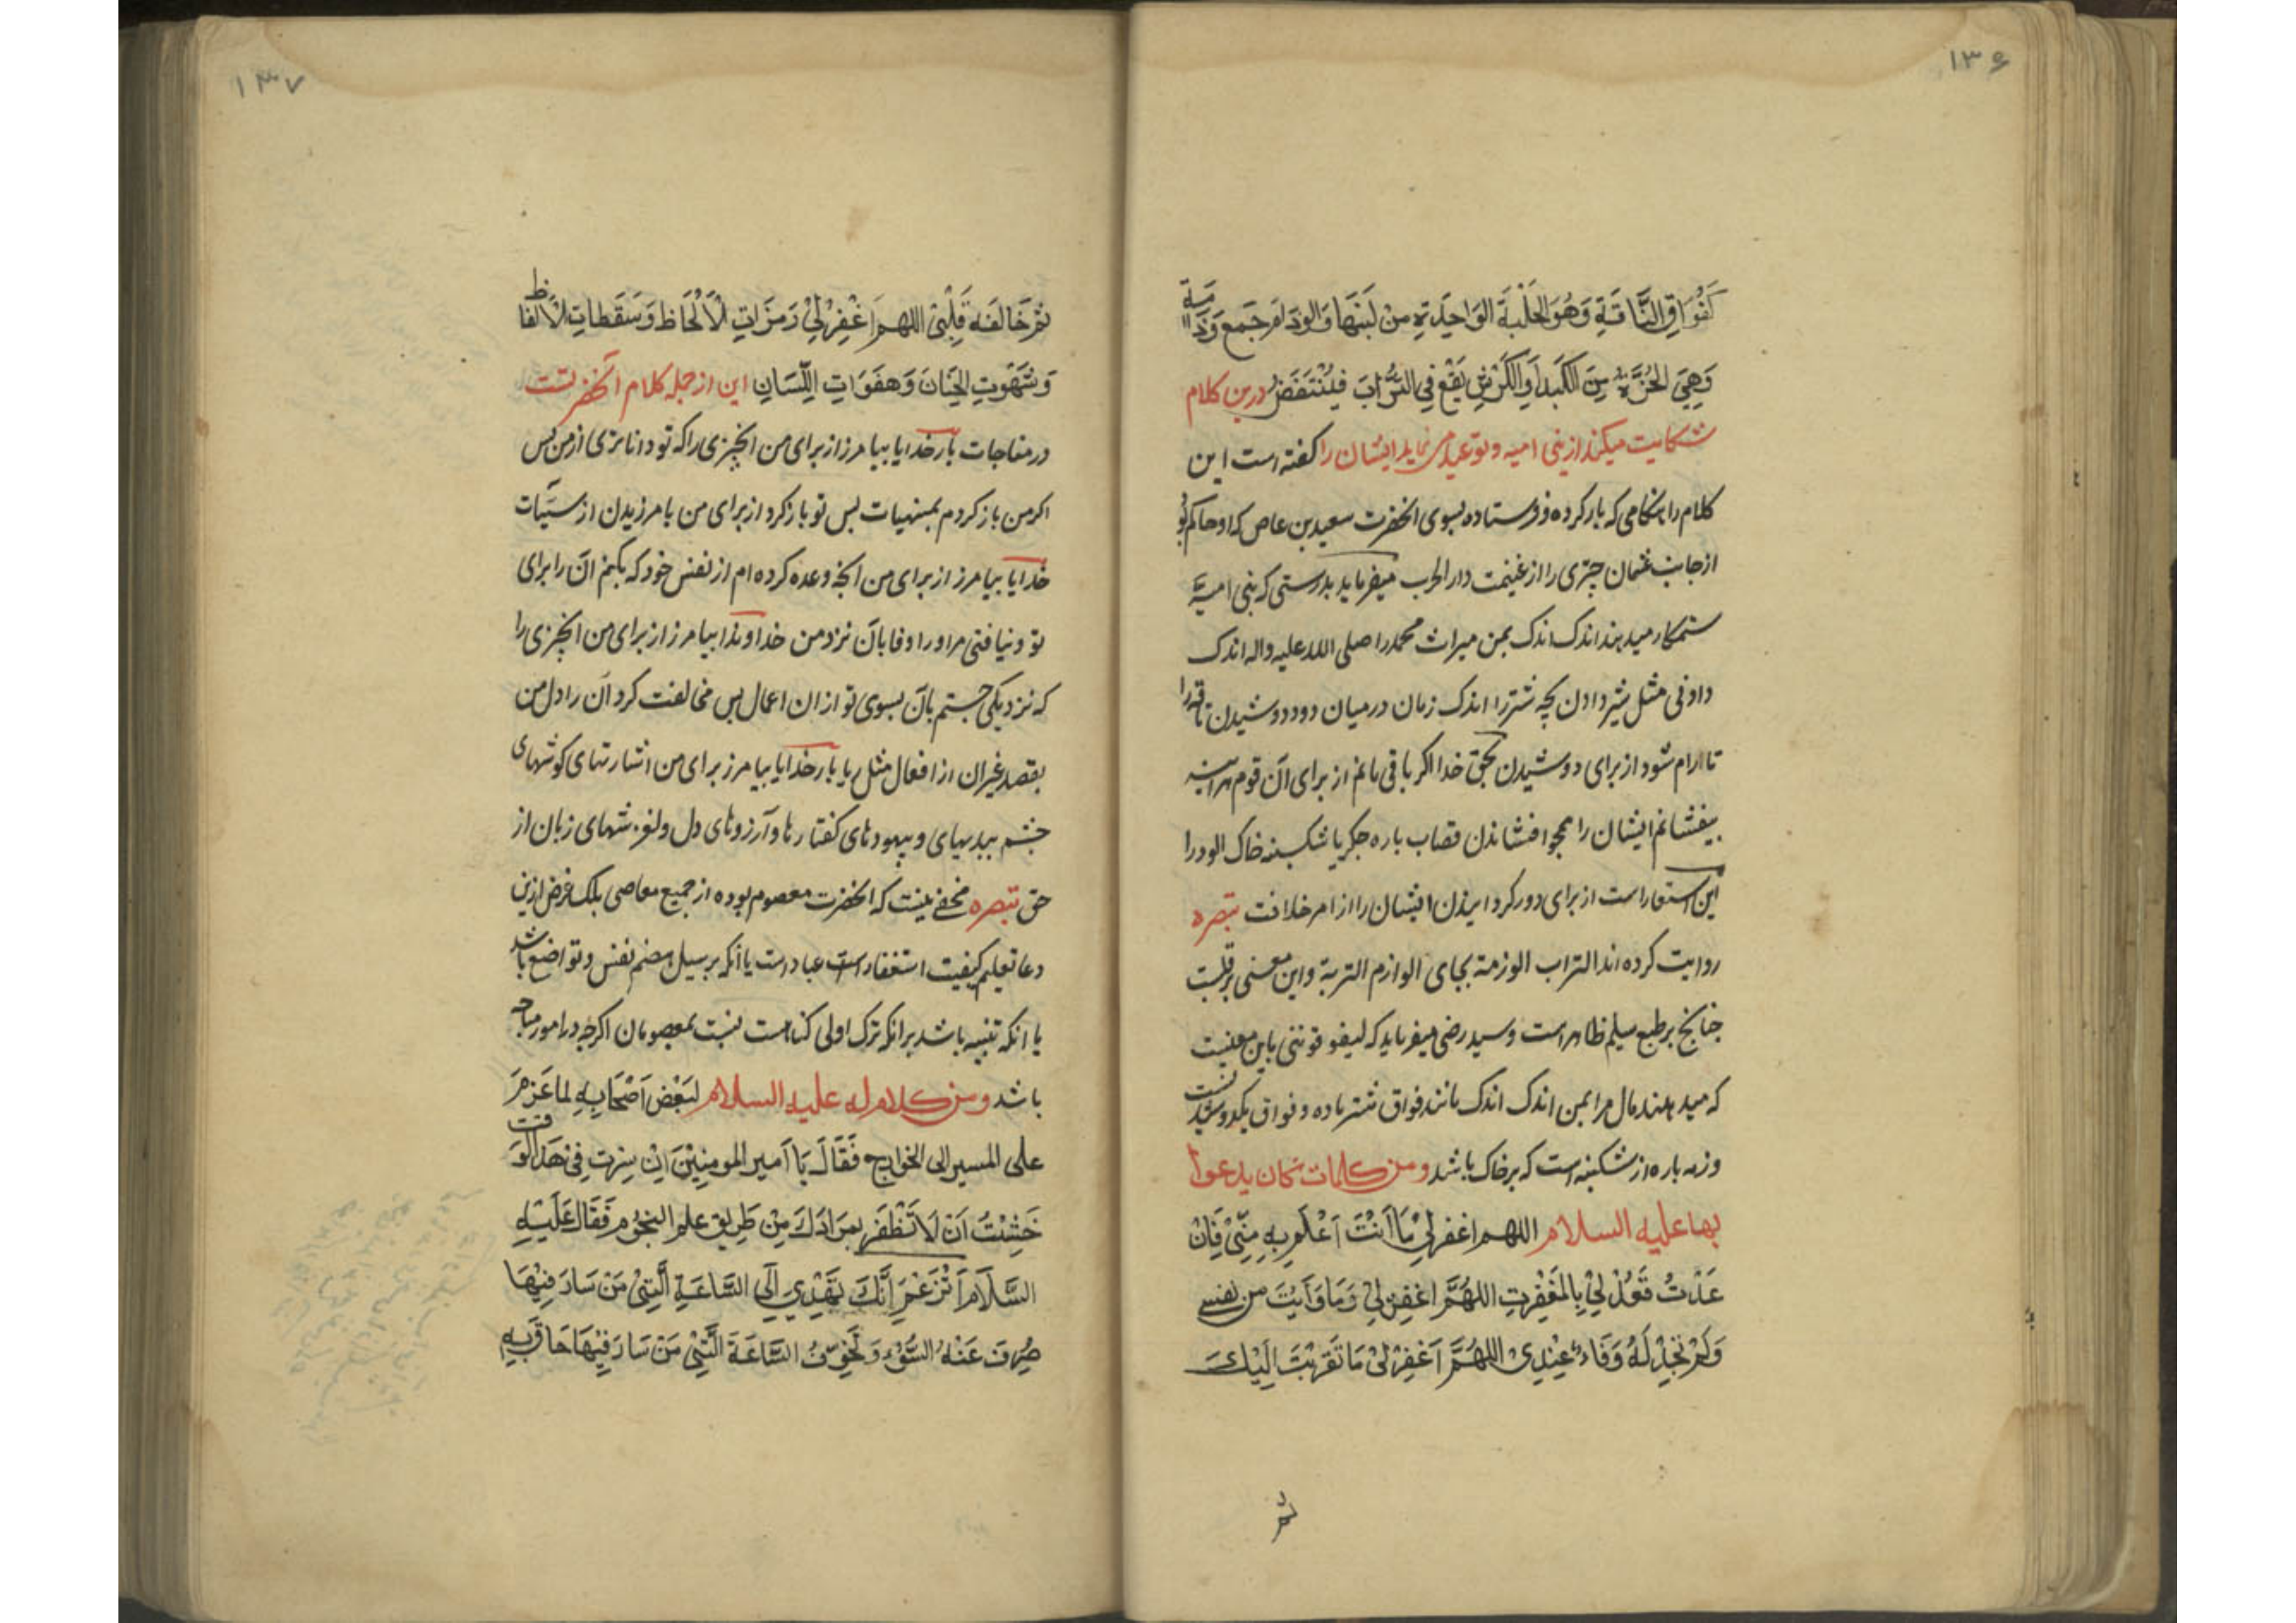 ١٣٦
كَفُوَاقِ النَّاقَةِ وَهُوَ الحَلْبَةُ الوَاحِدَةُ مِنْ لَبَنِهَا وَالوذام جَمع وَذَمَة
وَهِيَ الحُزَّةُ مِنَ الكَبِدِ أَوِ الكَرْشِ يَقَعُ فِي التُّرَابِ فَيُنْتَفَضُ درین کلام
شکایت میکند از بنی امیه و توعید می نماید ایشان را گفته است این
کلام را هنگامی که بار کرده و فرستاده بسوی آنحضرت سعید بن عاص که او حاکم بود
از جانب عثمان چیزی را از غنیمت دار الحرب میفرماید بدرستی که بنی امیه
ستمکار میدهند اندک اندک بمن میراث محمد را صلی الله علیه واله اندک
دادنی مثل شیر دادن بچه شتر را اندک زمان در میان دو دوشیدن ناقه را
تا ارام شود از برای دوشیدن بحق خدا اگر باقی مانم از برای آن قوم هراینه
بیفشانم ایشان را همچو افشاندن قصاب پاره جگر یا شکنبه خاک الود را
این استعاراست از برای دور کردانیدن ایشان را از امر خلافت تبصره
روایت کرده اند التراب الوذمة بجای الوذام التربة واین معنی بر قلبست
چنانچ بر طبع سلیم ظاهر است وسید رضی میفرماید که لیفوقوننی باین معنیست
که میدهند مال مرا بمن اندک اندک مانند فواق شتر ماده و فواق یکدوشیدنست
وذمه پاره از شکنبه است که بر خاک باشد ومن کلمات کان یدعوا
بها علیه السلام اللهم اغفر لِي مَا اَنْتَ اَعْلَمُ بِهِ مِنِّي فَاِنْ
عُدْتُ فَعُدْ لِيْ بِالمَغْفِرَتِ اللهُمَّ اغفِرْ لِي وَمَا وَأَيْتُ من نفسی
وَلَمْ تَجِدْ لَهُ وَفَاءً عِنْدِی اللهُمَّ اغْفِرْ لِیْ مَا تَقَرَّبْتُ اِلَیْكَ
ثم
١٣٧
ثم خَالَفَهُ قَلْبِیْ اللهم اغْفِرْ لِيْ رَمَزَاتِ الْاَلْحَاظِ وَسَقَطاتِ الْاَلفاظ
وَشَهَوٰتِ الجَنَانِ وَهَفَوَاتِ اللِّسَانِ این از جمله کلام آنحضرتست
در مناجات بار خدایا بیامرز از برای من آنچیزی را که تو داناتری از من پس
اگر من باز کردم بمنهیات پس تو باز کرد از برای من بامرزیدن از سیّات
خدایا بیامرز از برای من آنچه وعده کرده ام از نفس خود که بکنم آن را برای
تو ونیافتی مر او را وفا بآن نزد من خداوندا بیامرز از برای من آنچیزی را
که نزدیکی جستم بآن بسوی تو از ان اعمال پس مخالفت کرد آن را دل من
بقصد غیر ان از افعال مثل ریا بار خدایا بیامرز برای من اشارتهای کوشهای
چشم ببدیهای و بیهودهای گفتارها و آرزوهای دل ولغزشهای زبان از
حق تبصره مخفی نیست که آنحضرت معصوم بوده از جمیع معاصی بلک غرض ازین
دعا تعلیم کیفیت استغفار است عباد راست یا آنکه بر سبیل هضم نفس وتواضع باشد
یا انکه تنبیه باشد بر آنکه ترک اولی کناهست نسبت بمعصومان اگرچه در امور مباحه
باشد ومن کلام له علیه السلام لِبَعْضِ اَصْحَابِهِ لما عَزَمَ
علی المسیر الی الخوارج فَقَالَ یَا اَمیر المومِنِیْنَ اِنْ سِرْتَ فِیْ هذَا الوَقت
خَشِیْتُ اَنْ لَا تَظْفَرَ بِمُرَادِكَ مِنْ طَرِیقِ علم النجُومِ فَقَالَ عَلَیْهِ
السَّلَامُ اَتَزْعَمُ اَنَّكَ تَهْدِي اِلَی السَّاعَةِ الَّتِیْ مَنْ سَارَ فِیْهَا
صُرِفَ عَنْهُ السُّوْءُ وَتُخَوِّفُ السَّاعَةَ الَّتِیْ مَنْ سَارَ فِیْهَا حَاقَ بِهِ